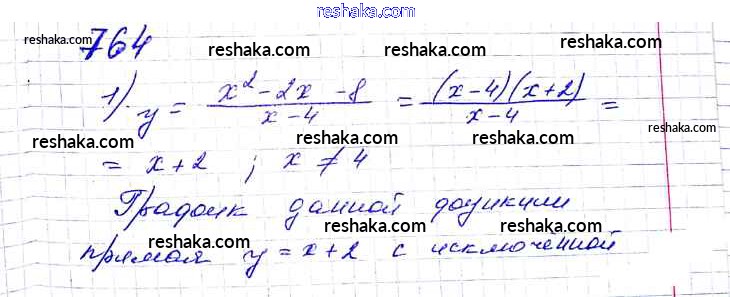 reshaka.com
764
reshaka.com reshaka.com reshaka.com
1). y = x² - 2x - 8 / x - 4 = (x - 4)(x + 2) / x - 4 =
reshaka.com reshaka.com reshaka.com
= x + 2 ; x ≠ 4
График данной функции
reshaka.com reshaka.com reshaka.com
прямая y = x + 2 с исключенной
reshaka.com reshaka.com